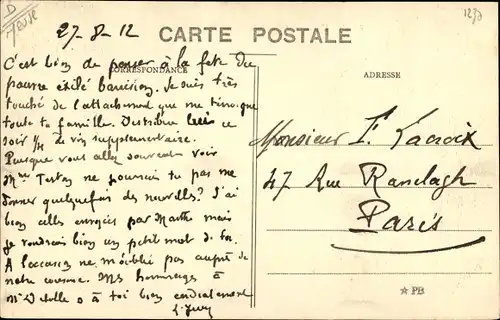 D
Meuse
1270
27-8-12
CARTE POSTALE
CORRESPONDANCE
ADRESSE
C'est bien de penser à la fête du
pauvre exilé Je suis très
touché de l'attachement que me témoigne
toute ta famille. Distribue leur ce
soir 1/4 de vin supplémentaire.
Puisque vous allez souvent voir
Mme ne pourrais tu pas me
donner quelquefois des nouvelles? J'ai
bien celles envoyées par Marthe mais
je voudrais bien un petit mot de toi.
A l'occasion ne m'oublie pas auprès de
notre cousine. Mes hommages à
et à toi bien cordialement
Monsieur F. Lacroix
47 Rue Ranelagh
Paris
PB